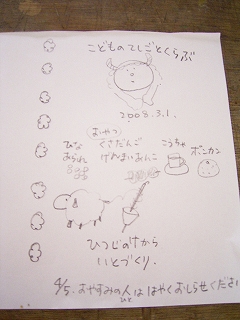 こどものてしごとくらぶ
2008.3.1.
おやつ
ぴな
あられ
くさだんご
げんまいあんこ
こうちゃ
ポンカン
ひつじのけから
いとづくり.
4/5. おやすみの人は はやくおしらせください
ひと